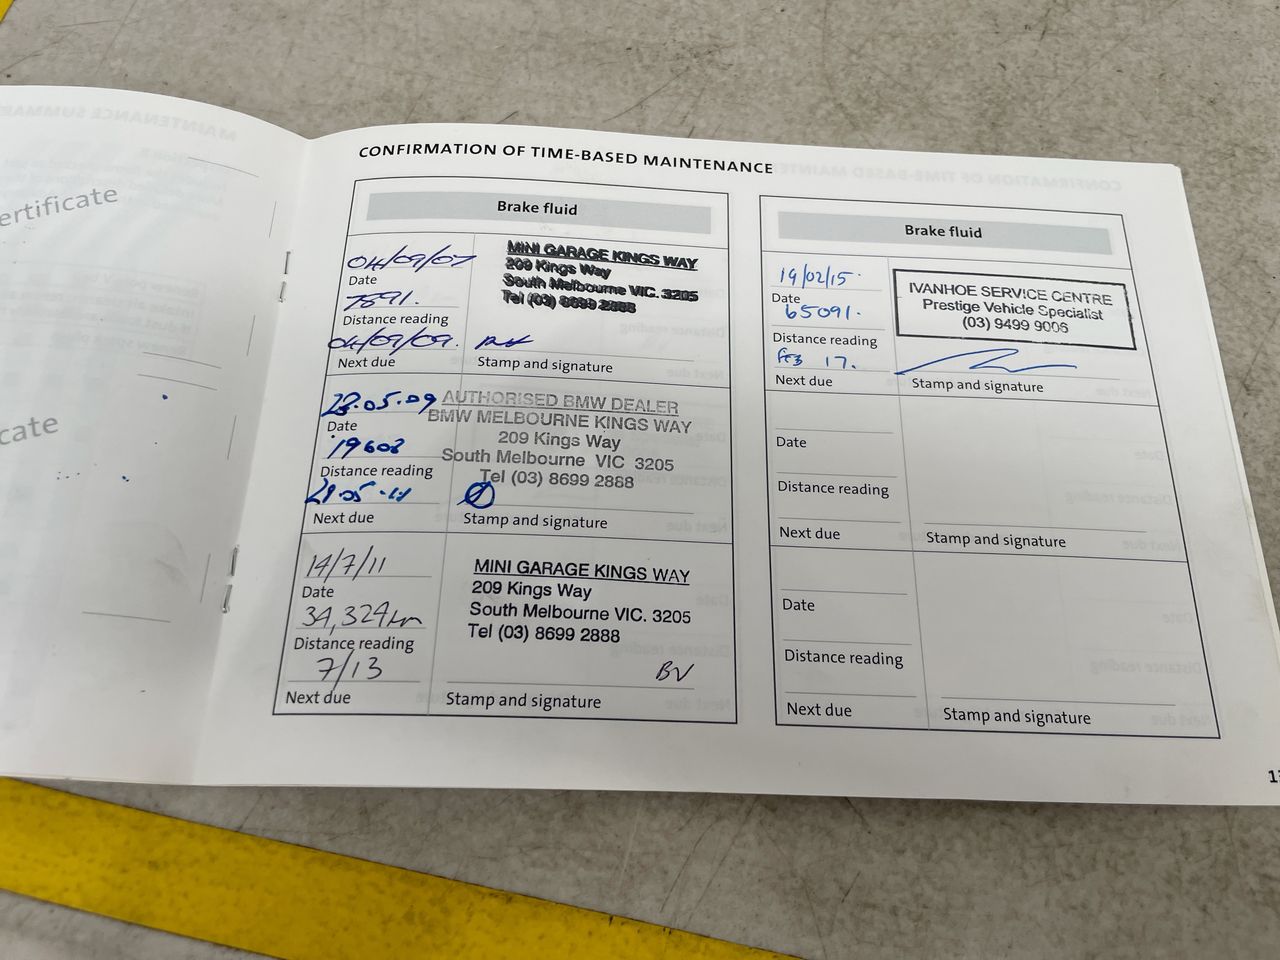 ertificate
cate
CONFIRMATION OF TIME-BASED MAINTENANCE
Brake fluid
04/09/07
Date
7891.
Distance reading
04/09/09.
Next due
MINI GARAGE KINGS WAY
209 Kings Way
South Melbourne VIC. 3205
Tel (03) 8699 2888
Stamp and signature
28.05.09
Date
19602
Distance reading
28.05.11
Next due
AUTHORISED BMW DEALER
BMW MELBOURNE KINGS WAY
209 Kings Way
South Melbourne VIC 3205
Tel (03) 8699 2888
Stamp and signature
14/7/11
Date
34,324km
Distance reading
7/13
Next due
MINI GARAGE KINGS WAY
209 Kings Way
South Melbourne VIC. 3205
Tel (03) 8699 2888
BV
Stamp and signature
Brake fluid
19/02/15
Date
65091.
Distance reading
Feb 17.
Next due
IVANHOE SERVICE CENTRE
Prestige Vehicle Specialist
(03) 9499 9006
Stamp and signature
Date
Distance reading
Next due
Stamp and signature
Date
Distance reading
Next due
Stamp and signature